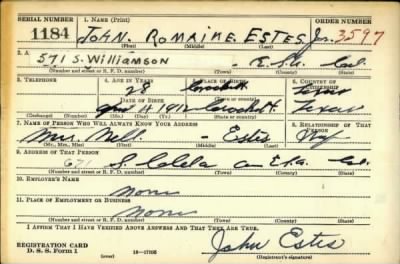 SERIAL NUMBER 1. NAME (Print) ORDER NUMBER
1184 JOHN. ROMAINE. ESTES Jr. 3597
(First) (Middle) (Last)
2. A
571 S. Williamson - E.L.A. Cal.
(Number and street or R. F. D. number) (Town) (County) (State)
3. TELEPHONE 4. AGE IN YEARS 5. PLACE OF BIRTH 6. COUNTRY OF CITIZENSHIP
28 Crockett Texas
DATE OF BIRTH
April 4 1912 Crockett. Texas
(Exchange) (Number) (Mo.) (Day) (Yr.) (Town or county) (State or country)
7. NAME OF PERSON WHO WILL ALWAYS KNOW YOUR ADDRESS 8. RELATIONSHIP OF THAT PERSON
Mrs. Nell - Estes Wife
(Mr., Mrs., Miss) (First) (Middle) (Last)
9. ADDRESS OF THAT PERSON
671 S. E.L.A. Cal.
(Number and street or R. F. D. number) (Town) (County) (State)
10. EMPLOYER'S NAME
None
11. PLACE OF EMPLOYMENT OR BUSINESS
None
(Number and street or R. F. D. number) (Town) (County) (State)
I AFFIRM THAT I HAVE VERIFIED ABOVE ANSWERS AND THAT THEY ARE TRUE.
REGISTRATION CARD
D. S. S. Form 1 (over) 16-17105
John Estes
(Registrant's signature)